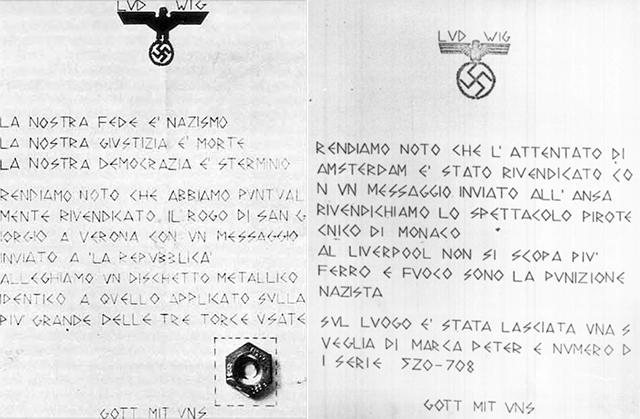 LVD WIG
LA NOSTRA FEDE E' NAZISMO
LA NOSTRA GIUSTIZIA E' MORTE
LA NOSTRA DEMOCRAZIA E' STERMINIO
RENDIAMO NOTO CHE ABBIAMO PVNTVAL
MENTE RIVENDICATO IL ROGO DI SAN G
IORGIO A VERONA CON VN MESSAGGIO
INVIATO A 'LA REPVBBLICA'
ALLEGHIAMO VN DISCHETTO METALLICO
IDENTICO A QVELLO APPLICATO SVLLA
PIV GRANDE DELLE TRE TORCE VSATE
GOTT MIT VNS
LVD WIG
RENDIAMO NOTO CHE L' ATTENTATO DI
AMSTERDAM E' STATO RIVENDICATO CO
N VN MESSAGGIO INVIATO ALL' ANSA
RIVENDICHIAMO LO SPETTACOLO PIROTE
CNICO DI MONACO
AL LIVERPOOL NON SI SCOPA PIV'
FERRO E FVOCO SONO LA PVNIZIONE
NAZISTA
SVL LVOGO E' STATA LASCIATA VNA S
VEGLIA DI MARCA PETER E NVMERO D
I SERIE ΣZO-708
GOTT MIT VNS